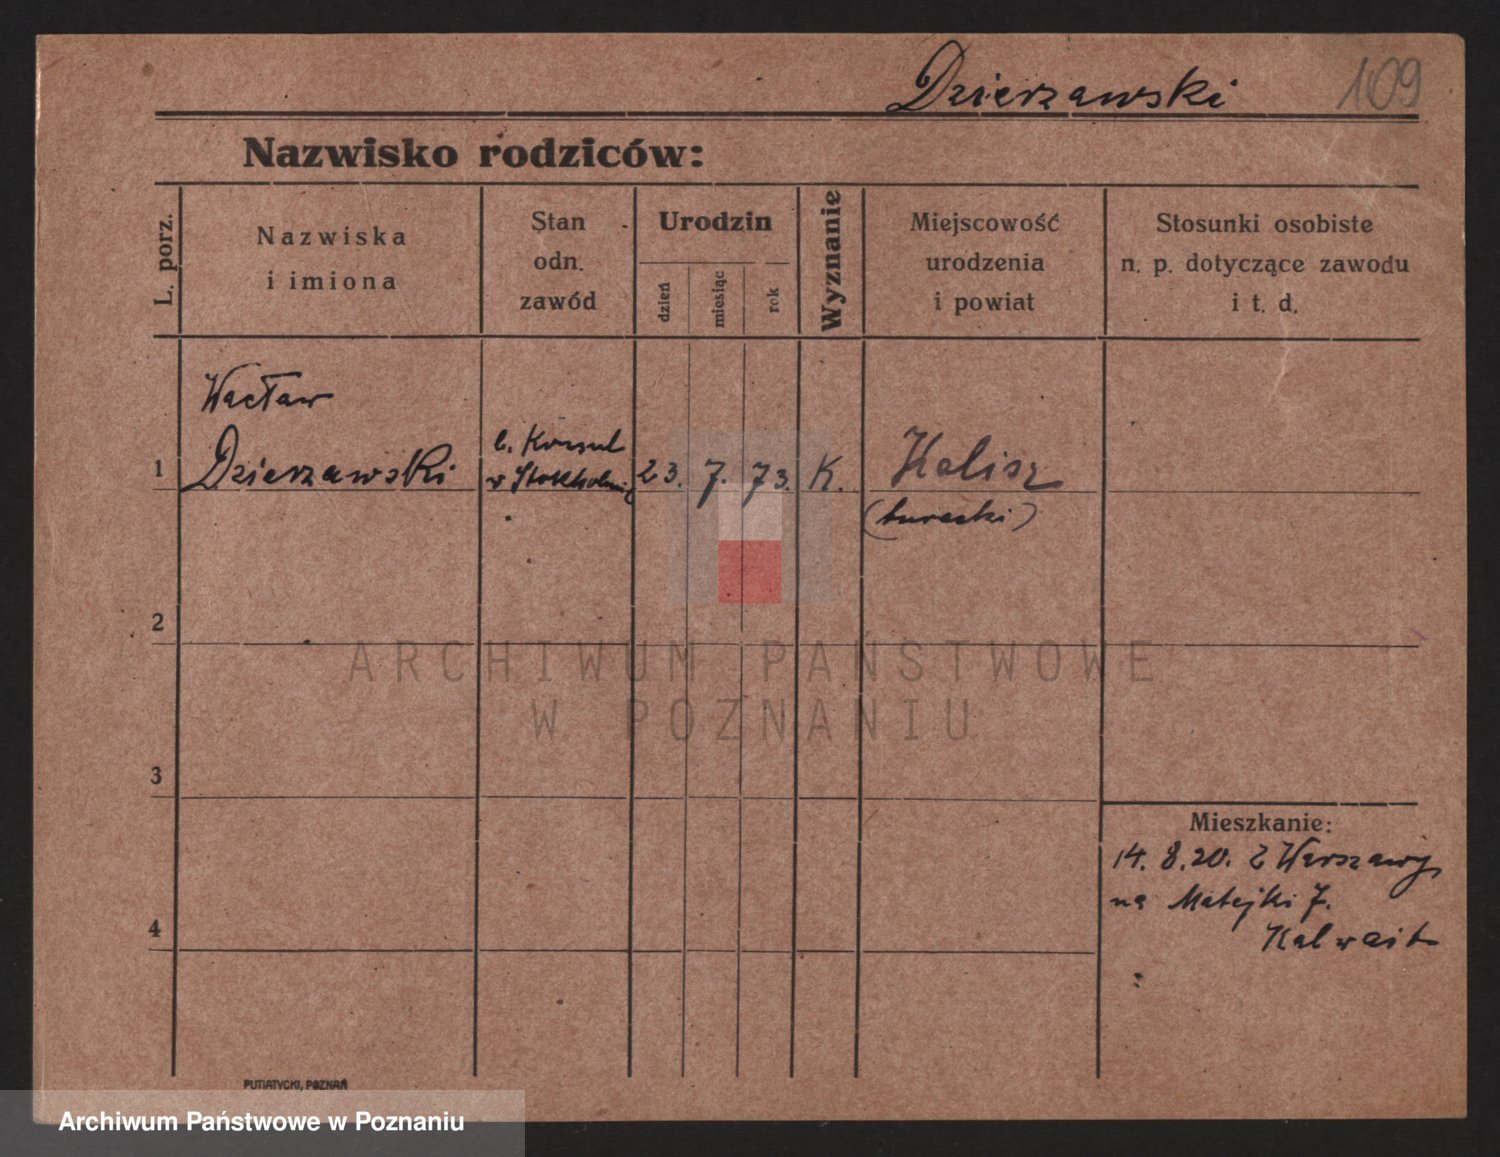 Dzierzawski
109
Nazwisko rodziców:
L. porz.
Nazwiska
i imiona
Stan
odn.
zawód
Urodzin
dzień
miesiąc
rok
Wyznanie
Miejscowość
urodzenia
i powiat
Stosunki osobiste
n. p. dotyczące zawodu
i t. d.
Wacław
1 Dzierzawski
b. Konsul
w Stokholmie
23. 7. 73. K. Kalisz
(turecki)
2
3
4
Mieszkanie:
14. 8. 20. Z Warszawy
na Matejki 7.
PUTIATYCKI, POZNAŃ
ARCHIWUM PAŃSTWOWE
W POZNANIU
Archiwum Państwowe w Poznaniu